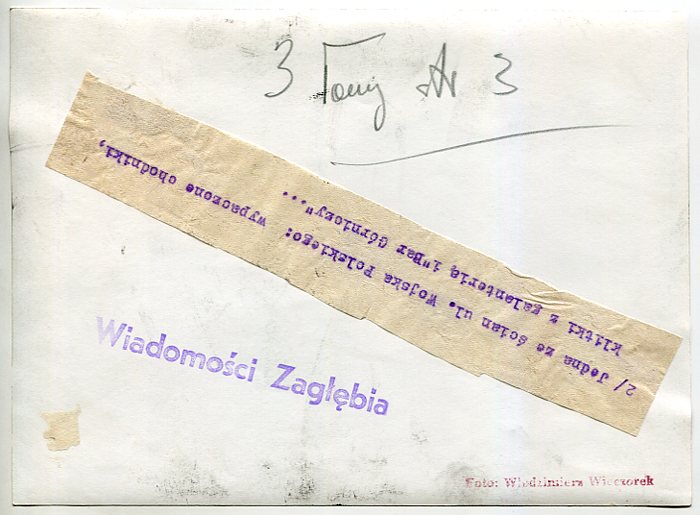 3 Tony Nr 3
2/ Jedna ze ścian ul. Wojska Polskiego: wypaczone chodniki,
klitki z galanterią i "Bar Górniczy"...
Wiadomości Zagłębia
Foto: Włodzimierz Wieczorek